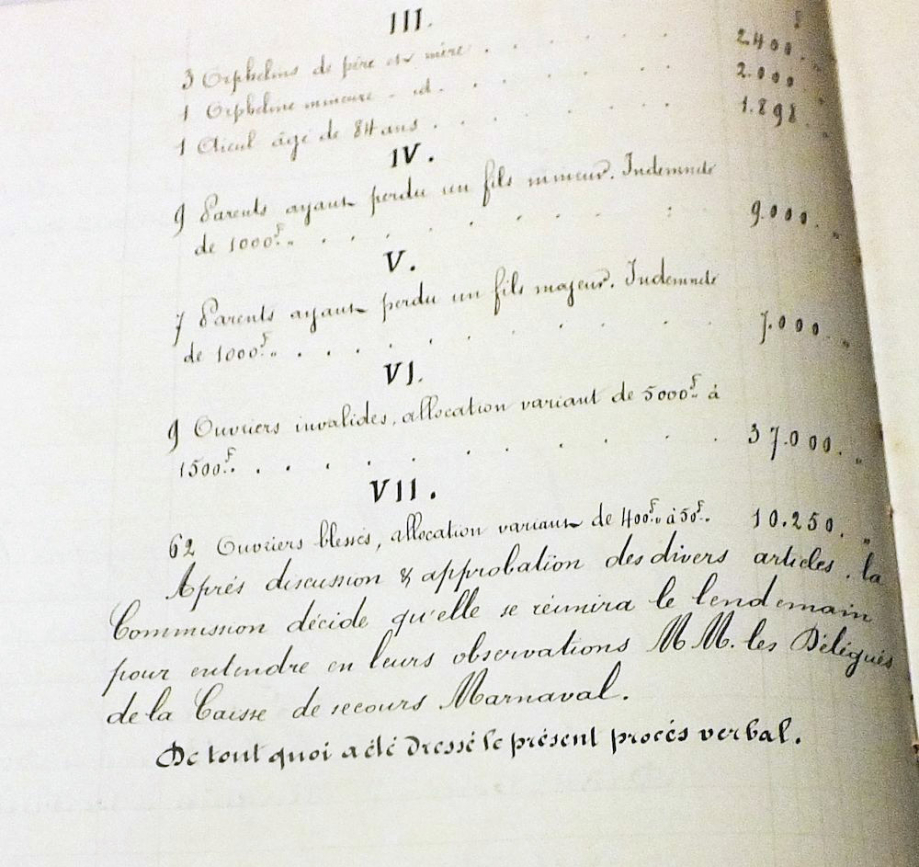 III.
f
3 Orphelins de père et mère . . . . . . 2.400. „
1 Orpheline mineure . id. . . . . . . 2.000 „
1 Aïeul âgé de 84 ans . . . . . . . 1.898. „
IV.
9 Parents ayant perdu un fils mineur. Indemnité
de 1000f. „ . . . . . . . . 9.000. „
V.
7 Parents ayant perdu un fils majeur. Indemnité
de 1000f. „ . . . . . . . . 7.000. „
VI.
9 Ouvriers invalides, allocation variant de 5000f. à
1500f. . . . . . . . . . 37.000. „
VII.
62 Ouvriers blessés, allocation variant de 400f. à 50f. 10.250. „
Après discussion & approbation des divers articles, la
Commission décide qu'elle se réunira le lendemain
pour entendre en leurs observations MM. les Délégués
de la Caisse de secours Marnaval.
De tout quoi a été dressé le présent procés verbal.